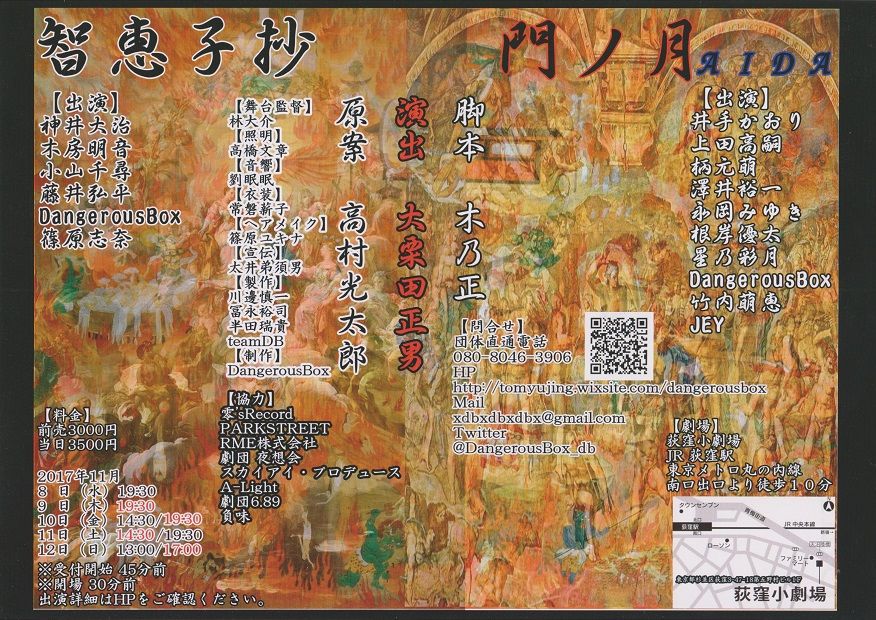 智恵子抄
【出演】
神井大治
木房明音
小山千尋
藤井弘平
DangerousBox
篠原志奈
【舞台監督】
林大介
【照明】
高橋文章
【音響】
劉眠眠
【衣装】
常磐薪子
【ヘアメイク】
篠原ユキナ
【宣伝】
太井弟須男
【製作】
川邊慎一
冨永裕司
半田瑞貴
teamDB
【制作】
DangerousBox
原案 高村光太郎
演出 大栗田正男
脚本 木乃正
門ノ月 AIDA
【出演】
井手かおり
上田高嗣
柄元萌
澤井裕一
永岡みゆき
根岸優太
星乃彩月
DangerousBox
竹内萌恵
JEY
【問合せ】
団体直通電話
080-8046-3906
HP
http://tomyujing.wixsite.com/dangerousbox
Mail
xdbxdbxdbx@gmail.com
Twitter
@DangerousBox_db
【料金】
前売3000円
当日3500円
2017年11月
8日(水) 19:30
9日(木) 19:30
10日(金) 14:30/19:30
11日(土) 14:30/19:30
12日(日) 13:00/17:00
※受付開始 45分前
※開場 30分前
出演詳細はHPをご確認ください。
【協力】
零'sRecord
P.ARKSTREET
RME株式会社
劇団 夜想会
スカイアイ・プロデュース
A-Light
劇団6.89
負味
【劇場】
荻窪小劇場
JR 荻窪駅
東京メトロ丸の内線
南口出口より徒歩10分
タウンセブン
青梅街道
荻窪駅
JR 中央本線
ローソン
ファミリーマート
荻窪小劇場